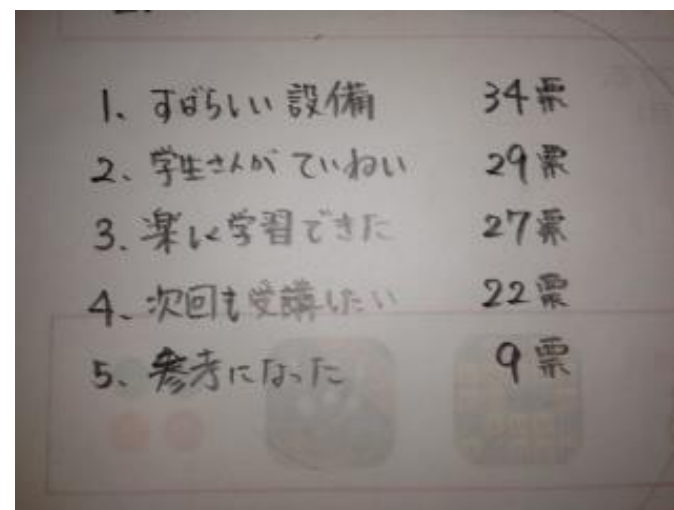 1、すばらしい設備 34票
2、学生さんがていねい 29票
3、楽しく学習できた 27票
4、次回も受講したい 22票
5、参考になった 9票